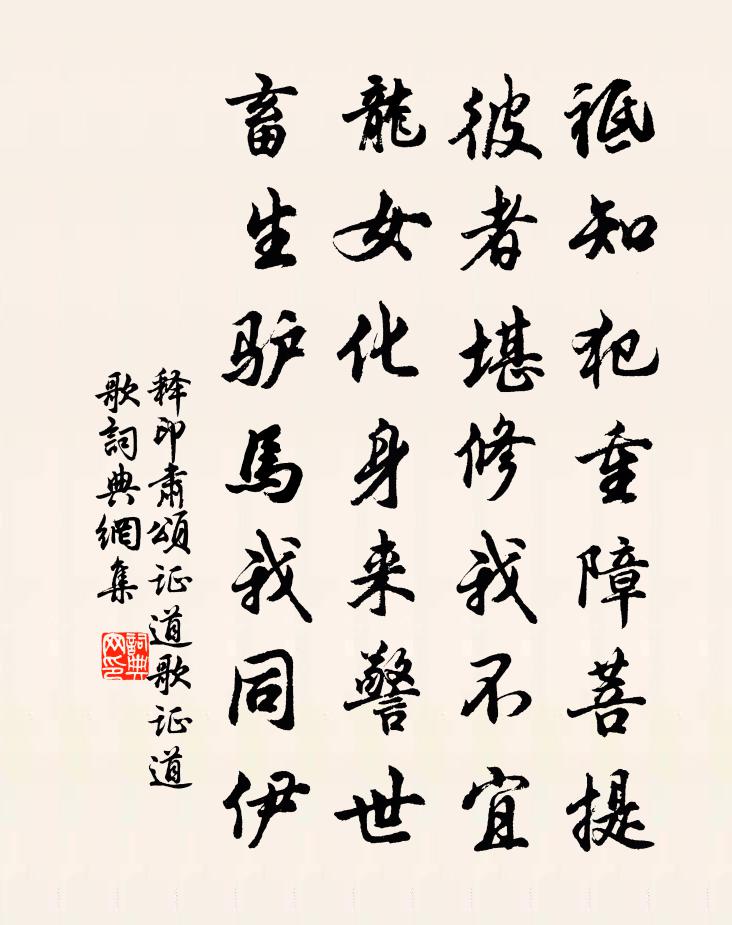 祗知犯重障菩提
彼者堪修我不宜
龍女化身来警世
畜生驴馬我同伊
释印肅頌证道歌证道
歌詞典網集
詞典网印